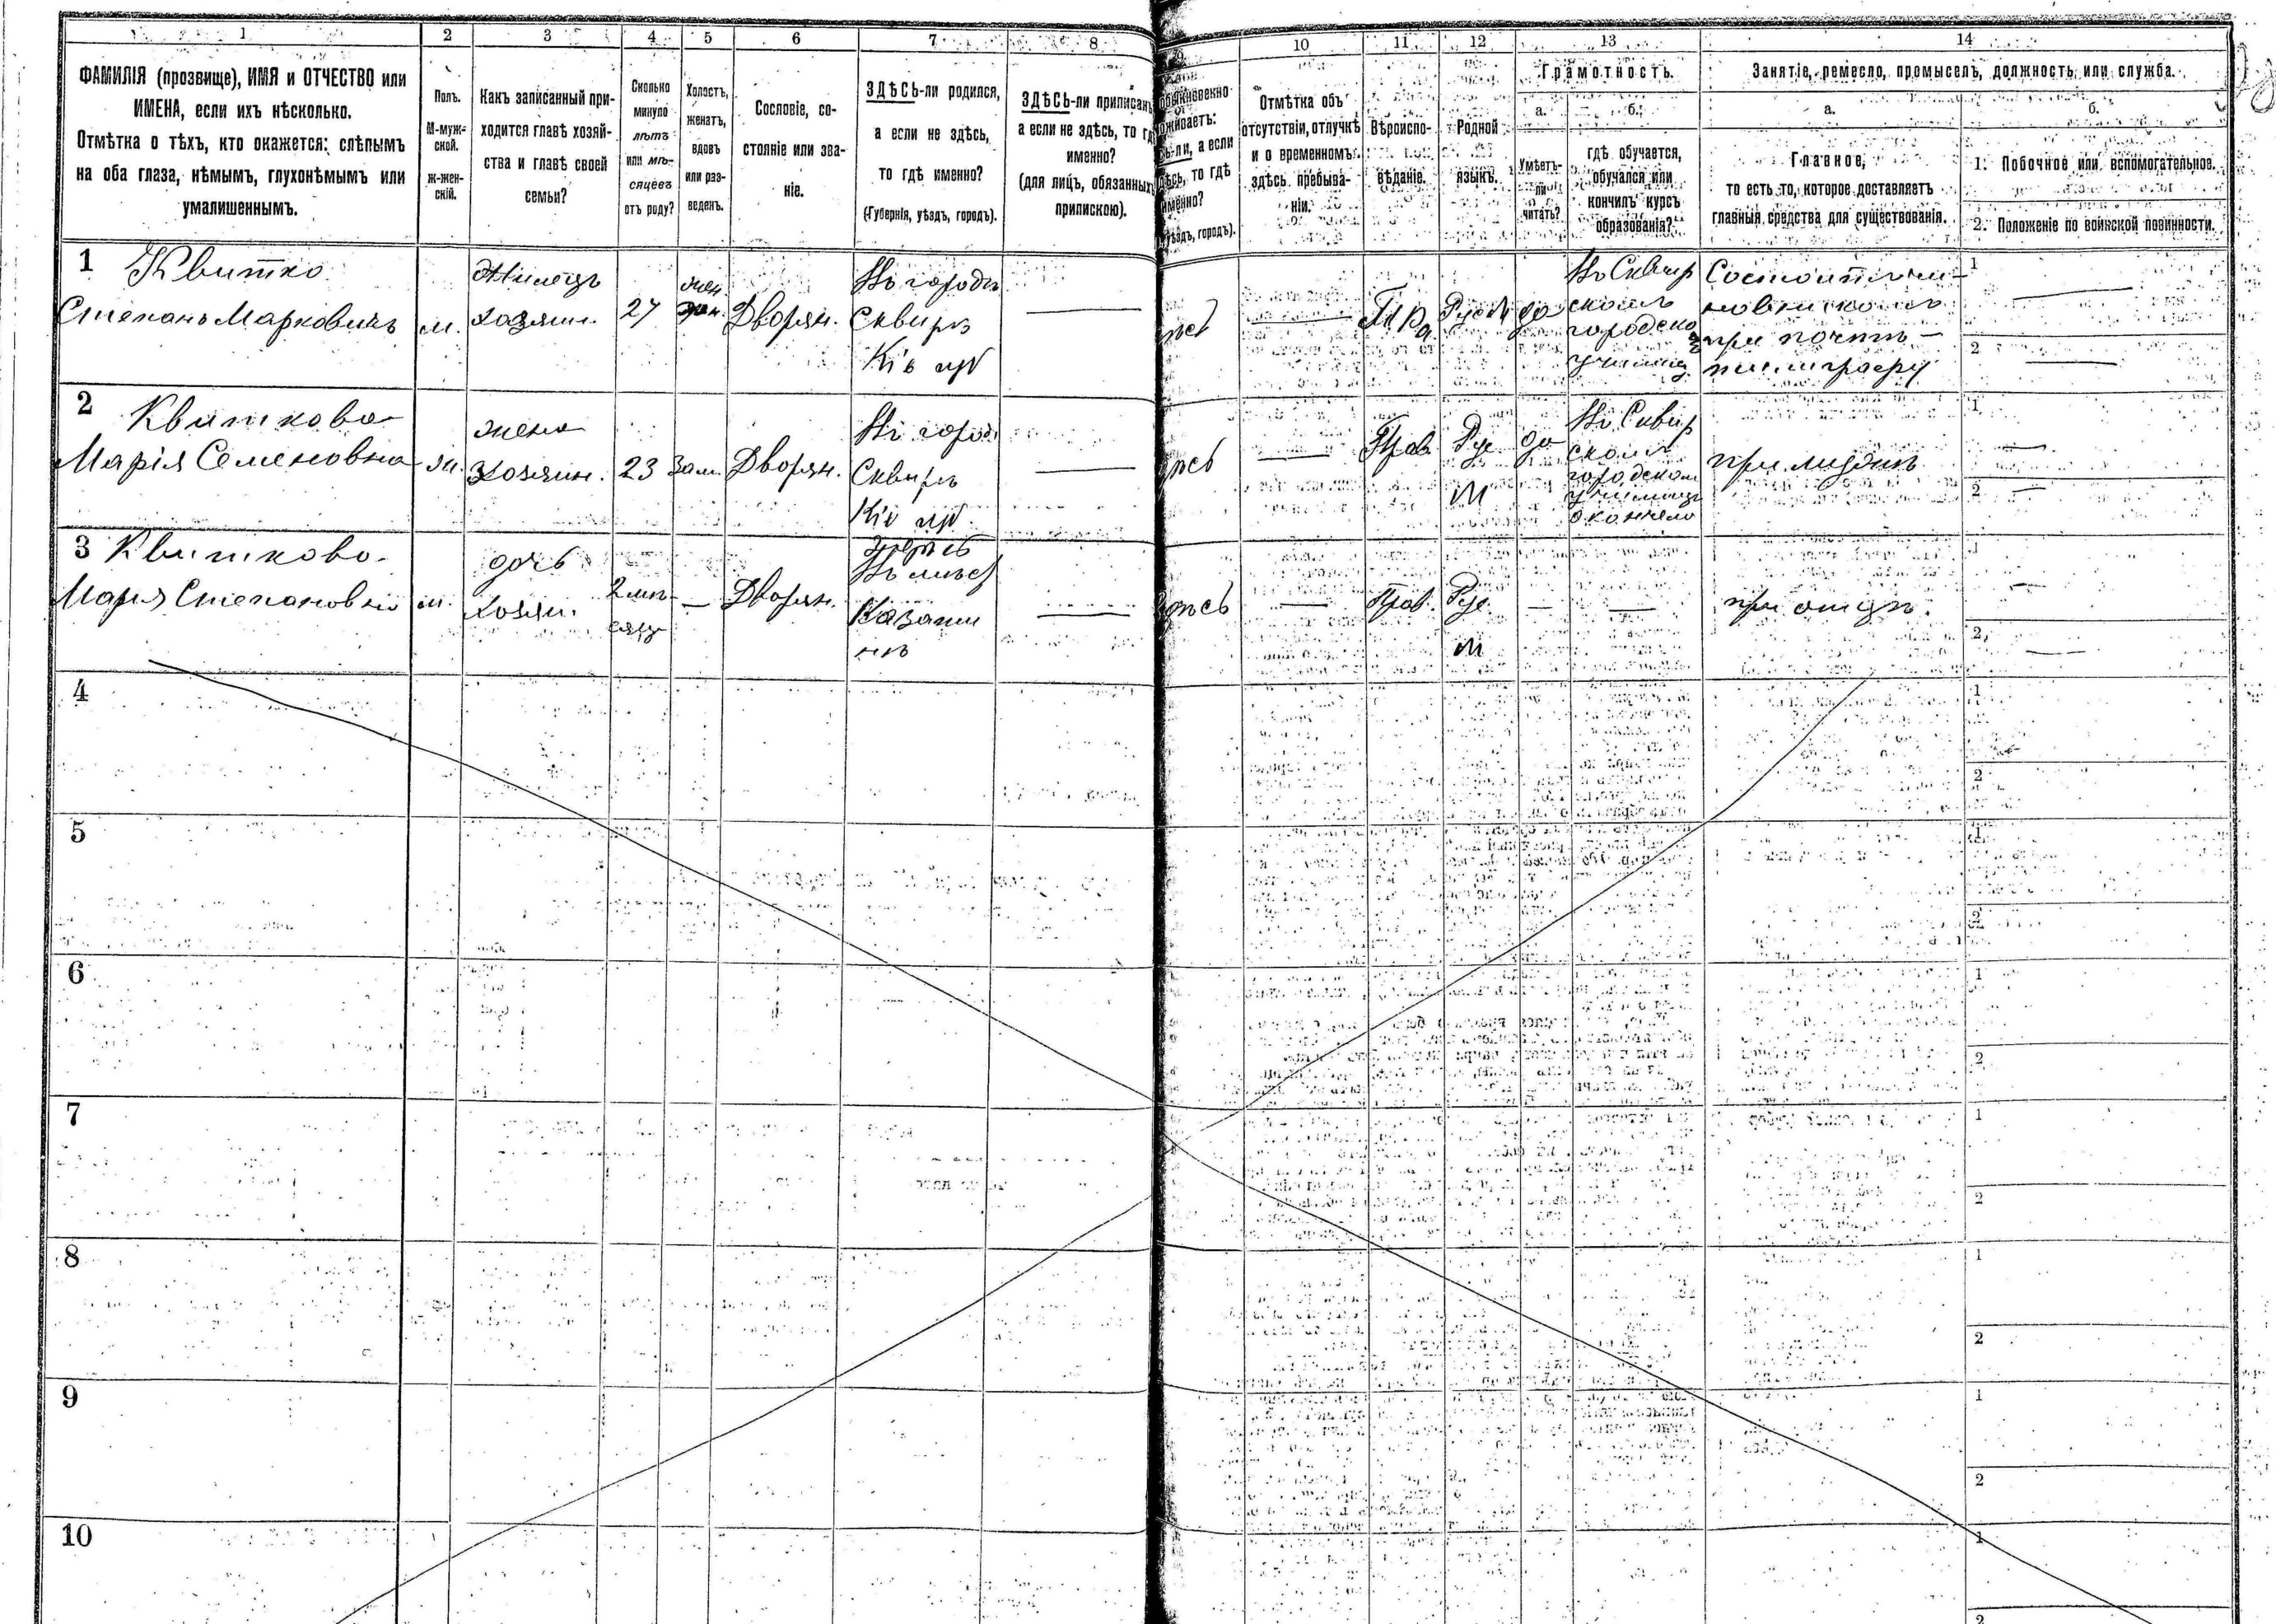 1 2 3 4 5 6 7 8 10 11 12 13 14
ФАМИЛІЯ (прозвище), ИМЯ и ОТЧЕСТВО или
ИМЕНА, если ихъ нѣсколько.
Отмѣтка о тѣхъ, кто окажется: слѣпымъ
на оба глаза, нѣмымъ, глухонѣмымъ или
умалишеннымъ.
Полъ.
М-муж-
ской.
ж-жен-
скій.
Какъ записанный при-
ходится главѣ хозяй-
ства и главѣ своей
семьи?
Сколько
минуло
лѣтъ
или мѣ-
сяцевъ
отъ роду?
Холостъ,
женатъ,
вдовъ
или раз-
веденъ.
Сословіе, со-
стояніе или зва-
ніе.
ЗДѢСЬ-ли родился,
а если не здѣсь,
то гдѣ именно?
(Губернія, уѣздъ, городъ).
ЗДѢСЬ-ли приписанъ
а если не здѣсь, то гд
именно?
(для лицъ, обязанныхъ
припискою).
ли, а если
то гдѣ
именно?
уѣздъ, городъ).
Отмѣтка объ
отсутствіи, отлучкѣ
и о временномъ
здѣсь пребыва-
ніи.
Вѣроиспо-
вѣданіе.
Родной
языкъ.
Грамотность.
а.
Умѣетъ-
ли
читать?
б.
гдѣ обучается,
обучался или
кончилъ курсъ
образованія?
Занятіе, ремесло, промыселъ, должность или служба.
а.
Главное,
то есть то, которое доставляетъ
главныя средства для существованія.
б.
1. Побочное или вспомогательное.
2. Положеніе по воинской повинности.
1 Квитко
Степанъ Марковичъ
м.
Жилецъ
хозяин.
27
жен.
Дворян.
Въ городѣ
Сквирѣ
Кіев губ
да
Въ Сквир
скомъ
городско
училищ
Состоитъ чи-
новникомъ
при почтъ-
телеграфу
1
2
2 Квиткова
Марія Семеновна
ж.
жена
хозяин.
23
Зам.
Дворян.
Въ город
Сквирѣ
Кіе губ
Прав
Рус
да
Въ Сквир
скомъ
городском
училищѣ
окончила
при мужѣ
1
2
3 Квиткова
Марія Степановна
ж.
дочь
хозяи.
2 мѣ-
сяц
—
Дворян.
Въ мѣст
Казати
нѣ
Прав.
Рус
—
—
при отцѣ.
1
2
4
1
2
5
1
2
6
1
2
7
1
2
8
1
2
9
1
2
10
1
2